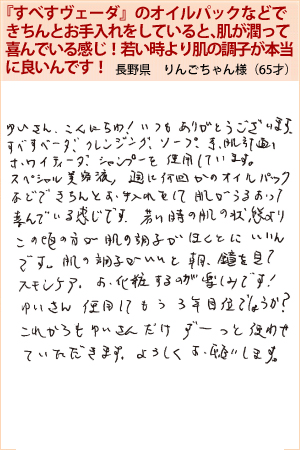 『すべすヴェーダ』のオイルパックなどで
きちんとお手入れをしていると、肌が潤って
喜んでいる感じ！若い時より肌の調子が本当
に良いんです！ 長野県　りんごちゃん様（65才）
ゆいさん、こんにちわ！いつもありがとうございます。
すべすべーダ、クレンジング、ソープ、
ホワイティーダ、シャンプーを使用しています。
スペシャル美容液、週に何回かのオイルパック
などできちんとお手入れをして肌がうるおって
喜んでいる感じです。若い時の肌の状態より
この頃の方が肌の調子がほんとにいいん
です。肌の調子がいいと朝、鏡を見て
スキンケア、お化粧するのが楽しみです！
ゆいさん使用してもう3年目位でしょうか？
これからもゆいさんだけずーっと使わせ
ていただきます。よろしくお願いします。